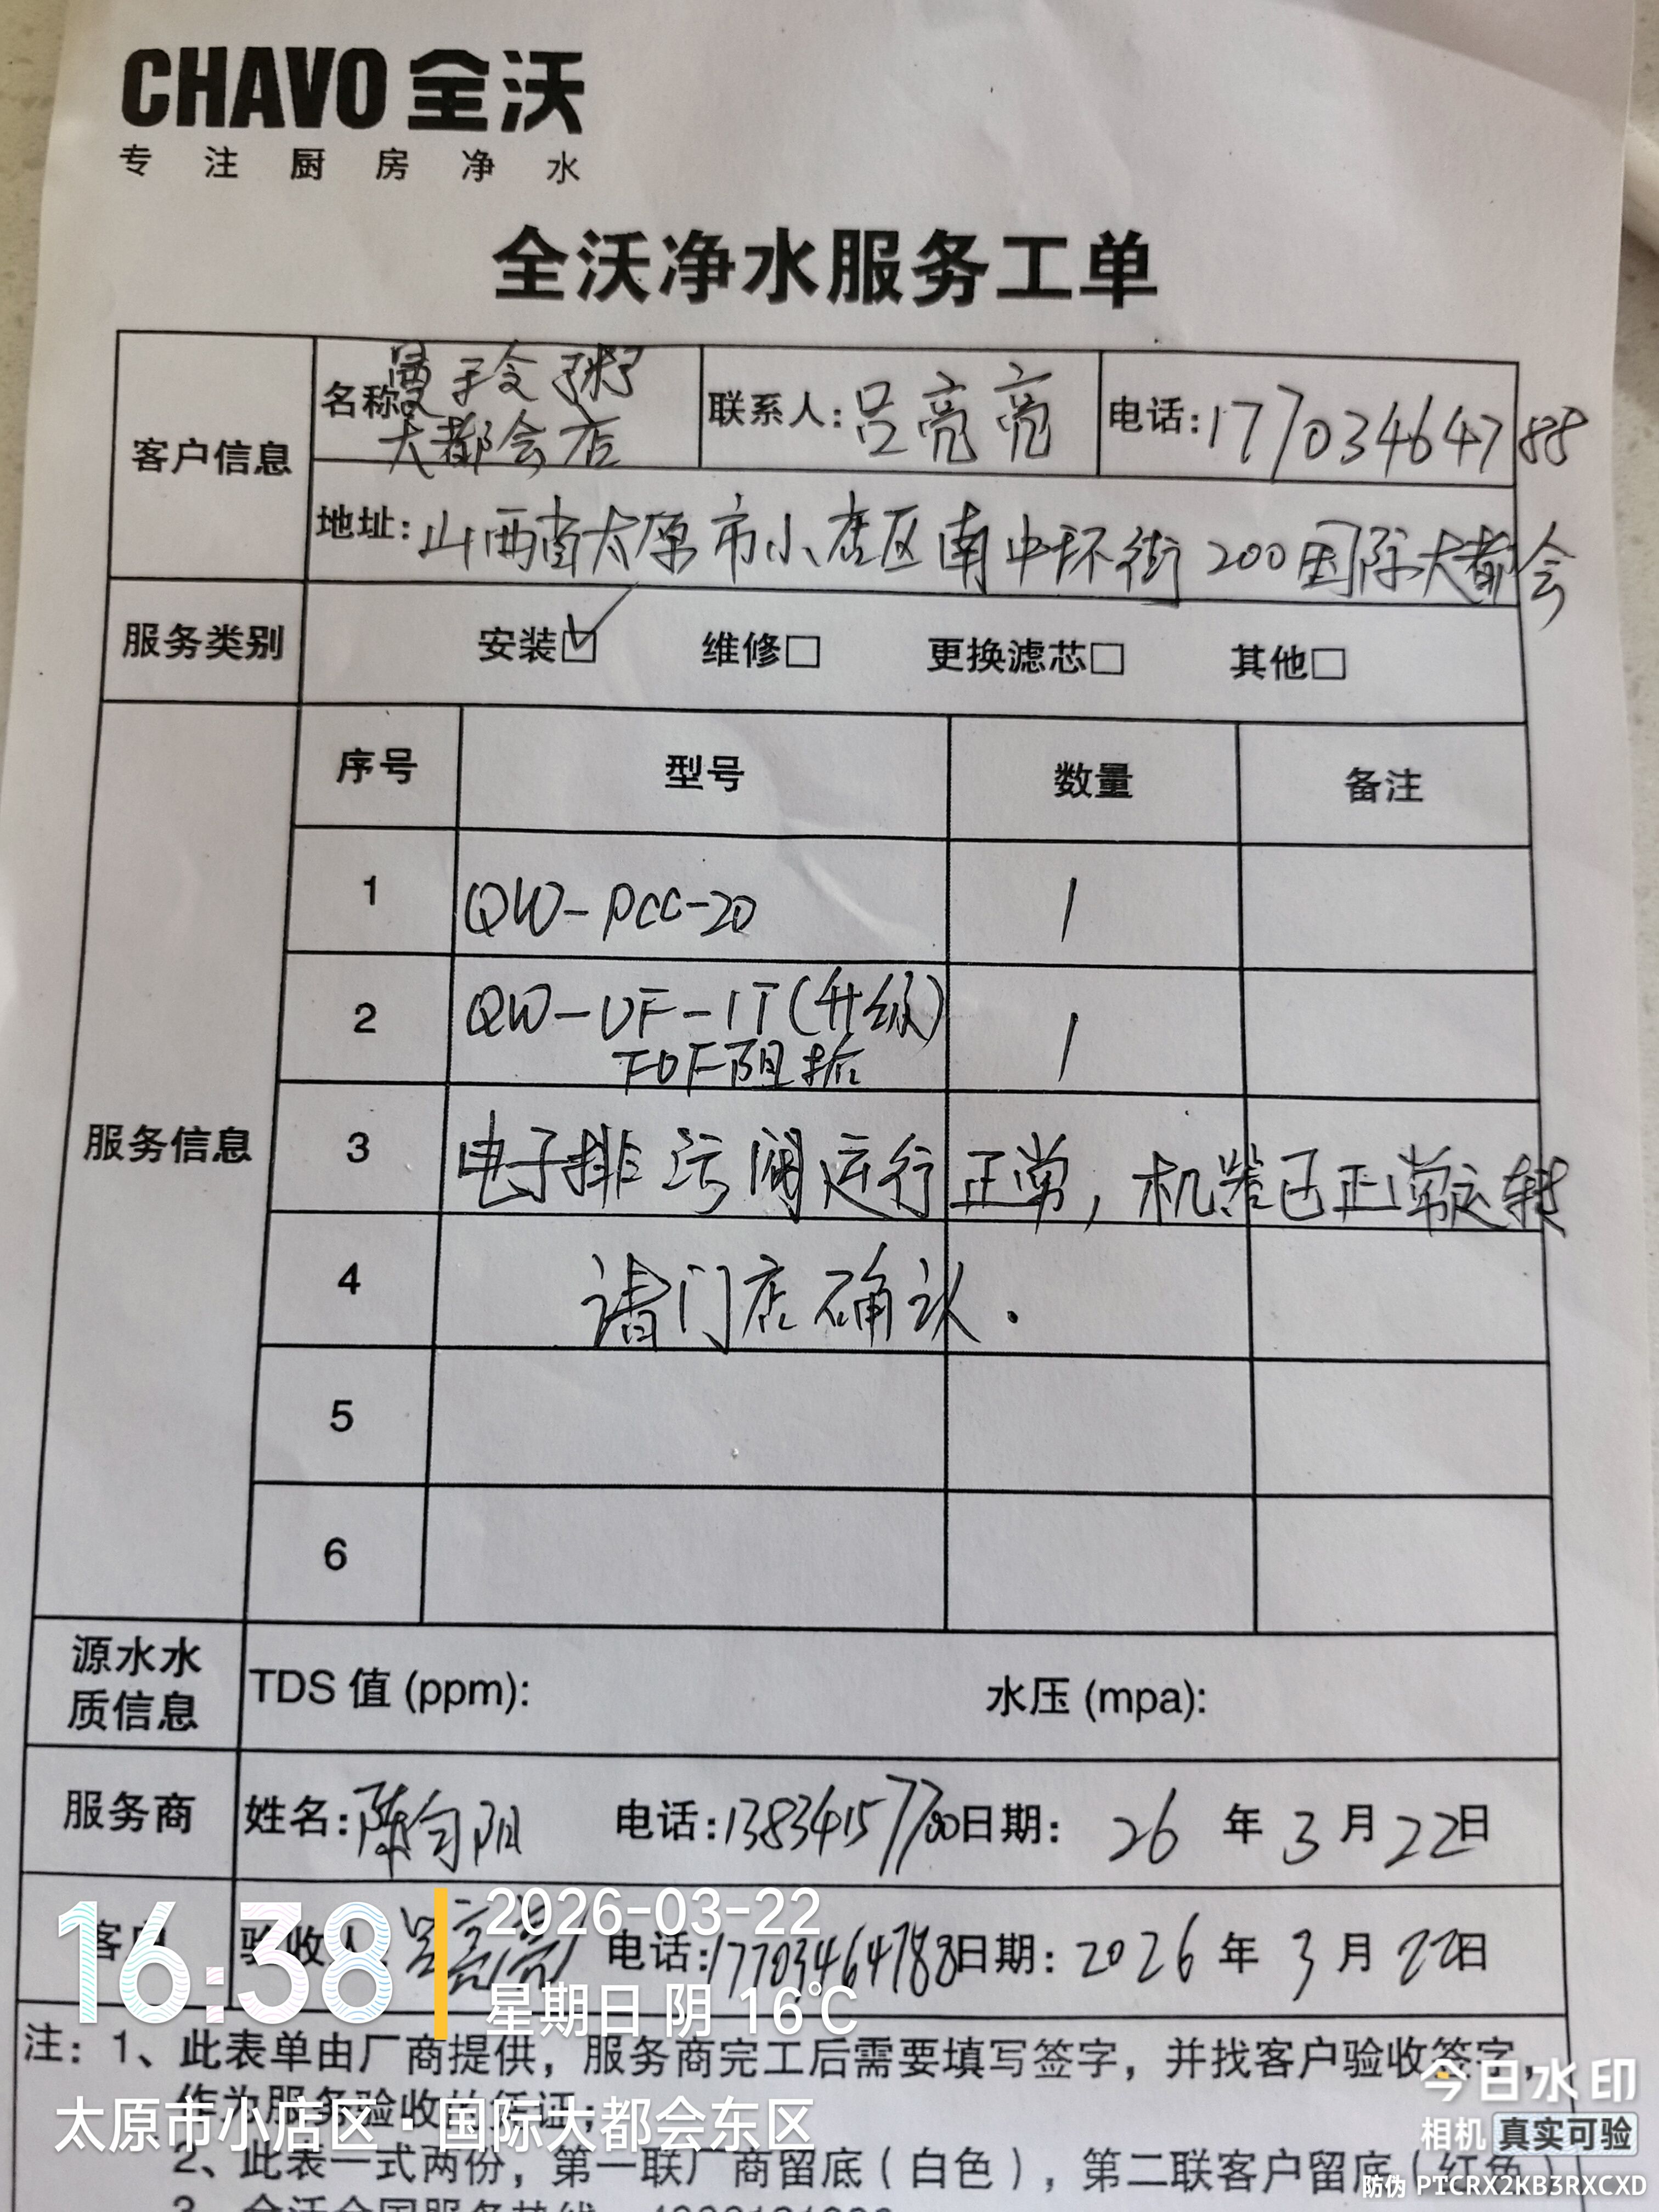 CHAVO 全沃
专注厨房净水
全沃净水服务工单
客户信息
名称: 曼玲粥
大都会店
联系人: 吕亮亮
电话: 17703464788
地址: 山西省太原市小店区南中环街200国际大都会
服务类别 安装☑ 维修□ 更换滤芯□ 其他□
服务信息
序号 型号 数量 备注
1 QW-PCC-20 1
2 QW-UF-1T(升级) 1
FOF阻垢
3 电子排污阀运行正常,机器已正常运转
4 请门店确认.
5
6
源水水
质信息
TDS 值 (ppm): 水压 (mpa):
服务商 姓名: 陈向阳 电话: 13834157700 日期: 26 年 3 月 22日
客户 验收人 吕亮亮 电话: 17703464788 日期: 2026 年 3 月 22日
注: 1、此表单由厂商提供,服务商完工后需要填写签字,并找客户验收签字,
作为服务验收的凭证;
2、此表一式两份,第一联厂商留底(白色),第二联客户留底(红色)
3、全沃全国服务热线
16:38
2026-03-22
星期日 阴 16℃
太原市小店区·国际大都会东区
今日水印
相机 真实可验
防伪 PTCRX2KB3RXCXD